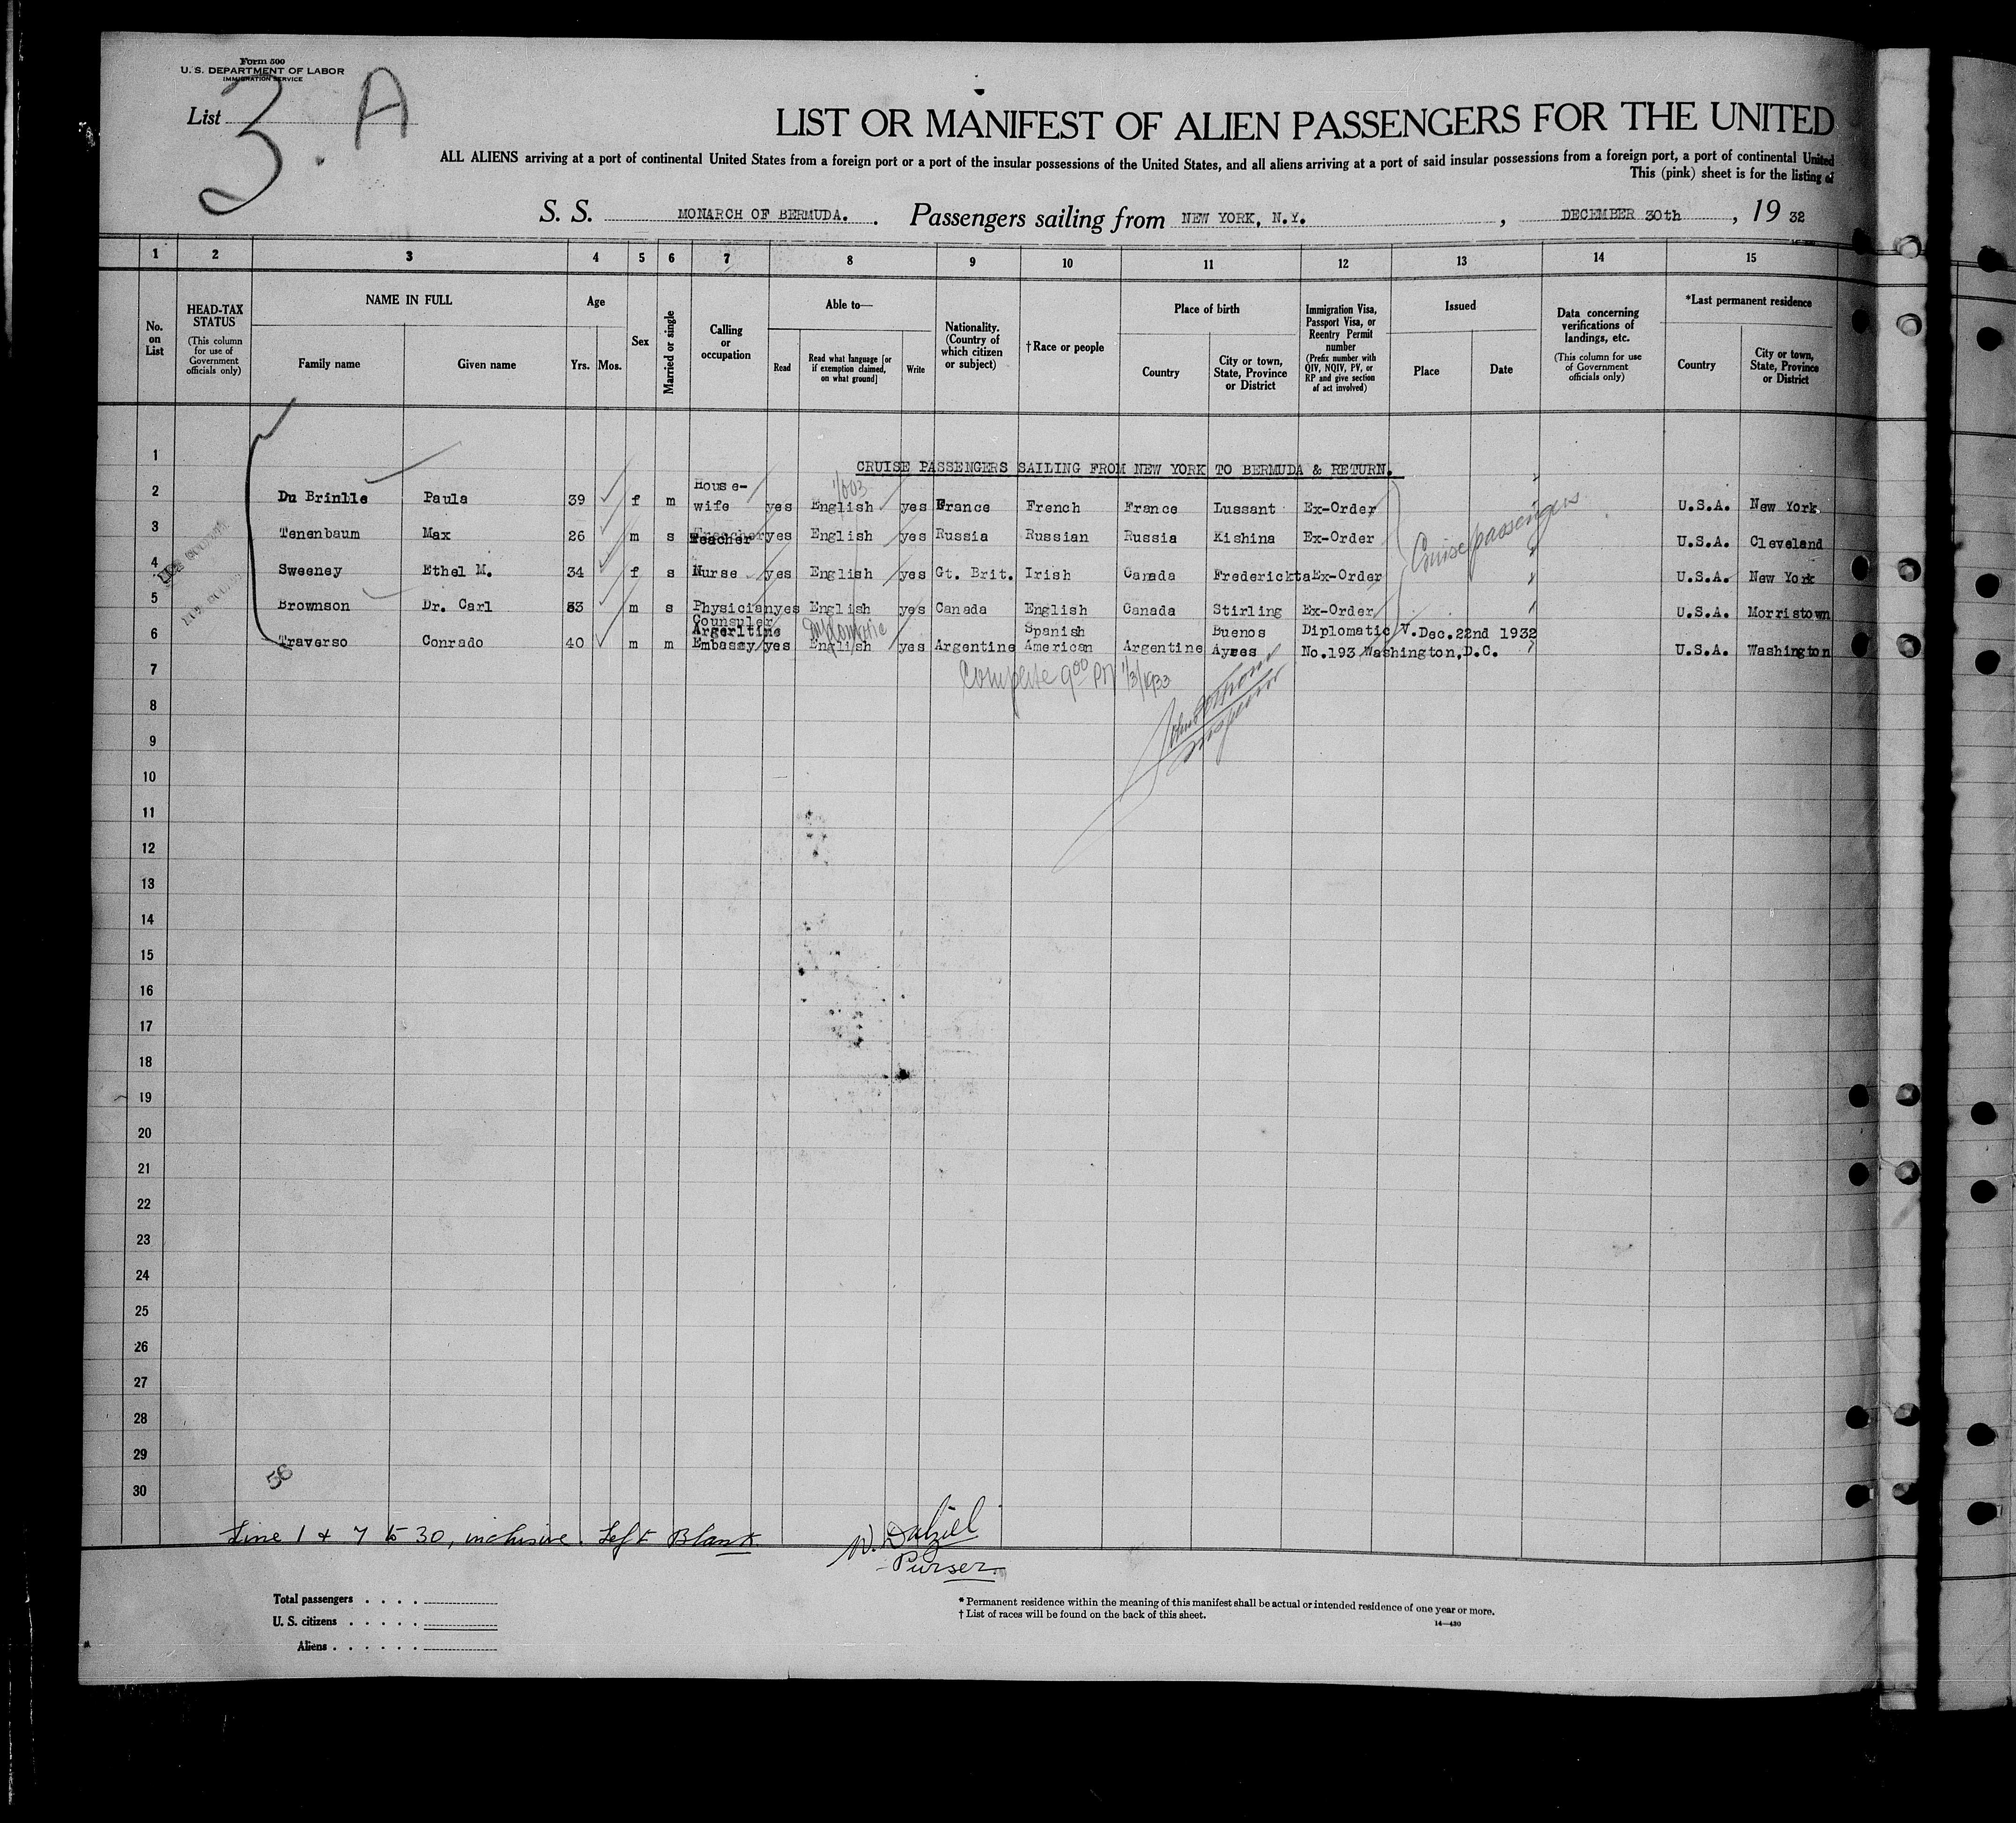 Form 500
U. S. DEPARTMENT OF LABOR
IMMIGRATION SERVICE
List 3. A
LIST OR MANIFEST OF ALIEN PASSENGERS FOR THE UNITED
ALL ALIENS arriving at a port of continental United States from a foreign port or a port of the insular possessions of the United States, and all aliens arriving at a port of said insular possessions from a foreign port, a port of continental United
This (pink) sheet is for the listing of
S. S. MONARCH OF BERMUDA. Passengers sailing from NEW YORK, N.Y. , DECEMBER 30th , 19 32
1 2 3 4 5 6 7 8 9 10 11 12 13 14 15
No. on List
HEAD-TAX STATUS
(This column for use of Government officials only)
NAME IN FULL
Family name
Given name
Age
Yrs. Mos.
Sex
Married or single
Calling or occupation
Able to—
Read
Read what language [or if exemption claimed, on what ground]
Write
Nationality. (Country of which citizen or subject)
†Race or people
Place of birth
Country
City or town, State, Province or District
Immigration Visa, Passport Visa, or Reentry Permit number
(Prefix number with QIV, NQIV, PV, or RP and give section of act involved)
Issued
Place
Date
Data concerning verifications of landings, etc.
(This column for use of Government officials only)
*Last permanent residence
Country
City or town, State, Province or District
1 CRUISE PASSENGERS SAILING FROM NEW YORK TO BERMUDA & RETURN.
2 Du Brinlle Paula 39 f m House-wife yes English yes France French France Lussant Ex-Order U.S.A. New York
3 Tenenbaum Max 26 m s Teacher yes English yes Russia Russian Russia Kishina Ex-Order U.S.A. Cleveland
4 Sweeney Ethel M. 34 f s Nurse yes English yes Gt. Brit. Irish Canada Frederickta Ex-Order U.S.A. New York
5 Brownson Dr. Carl 53 m s Physician yes English yes Canada English Canada Stirling Ex-Order U.S.A. Morristown
6 Traverso Conrado 40 m m Counsuler Argerltine Embassy yes English yes Argentine Spanish American Argentine Buenos Ayres Diplomatic V. No.193 Washington,D.C. Dec.22nd 1932 U.S.A. Washington
Cruise passengers
Diplomatic
7 Complete 9 00 PM 1/3/1933
Inspector
8
9
10
11
12
13
14
15
16
17
18
19
20
21
22
23
24
25
26
27
28
29
30
56
Line 1 & 7 to 30, inclusive. Left Blank
W. Dalziel
Purser.
Total passengers . . . .
U. S. citizens . . . . .
Aliens . . . . . .
* Permanent residence within the meaning of this manifest shall be actual or intended residence of one year or more.
† List of races will be found on the back of this sheet.
14—430